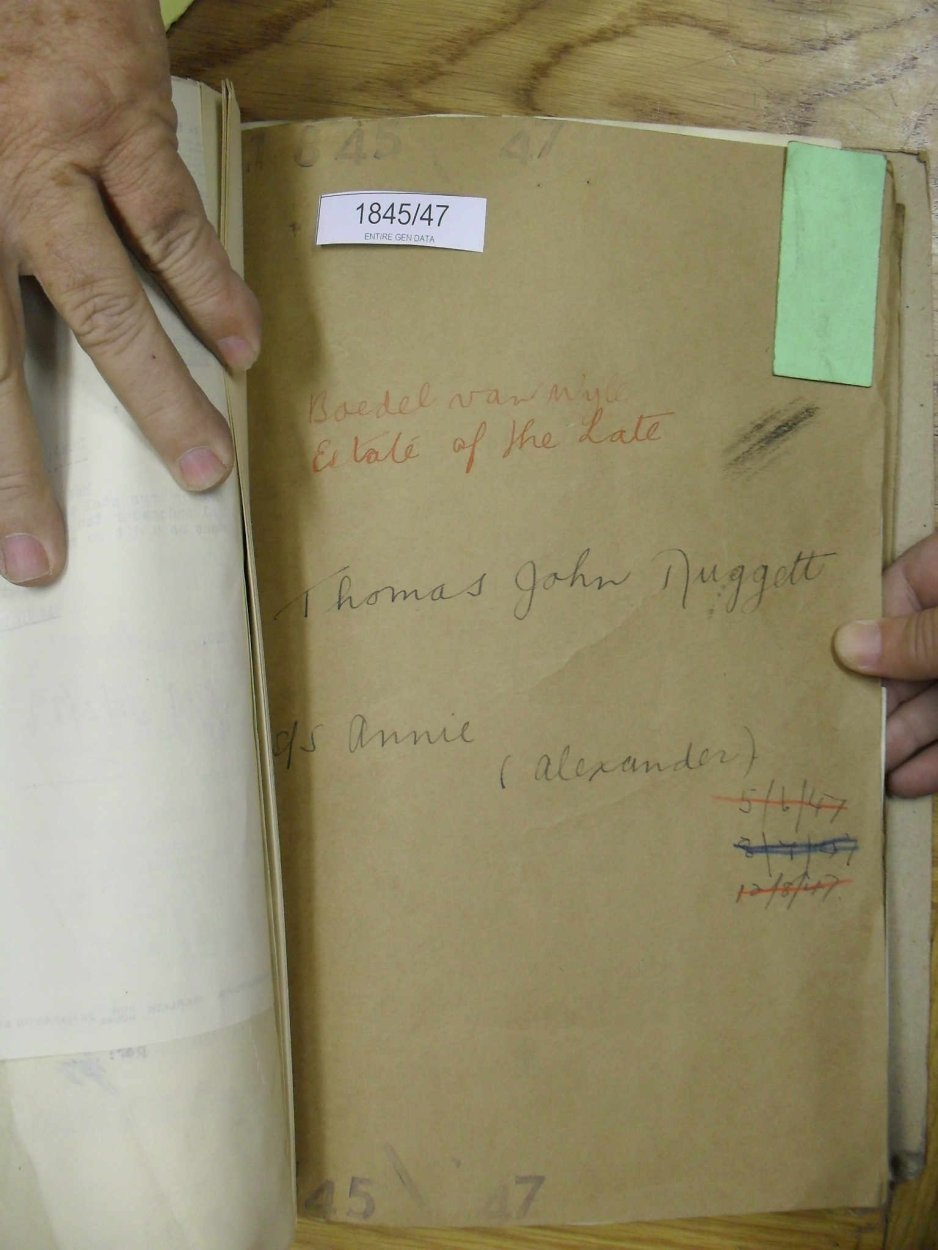 1845 47
1845/47
ENTIRE GEN DATA
Boedel van wyle
Estate of the Late
Thomas John Nuggett
d/s Annie
(Alexander)
5/6/47
8/7/47
12/8/47
45 47